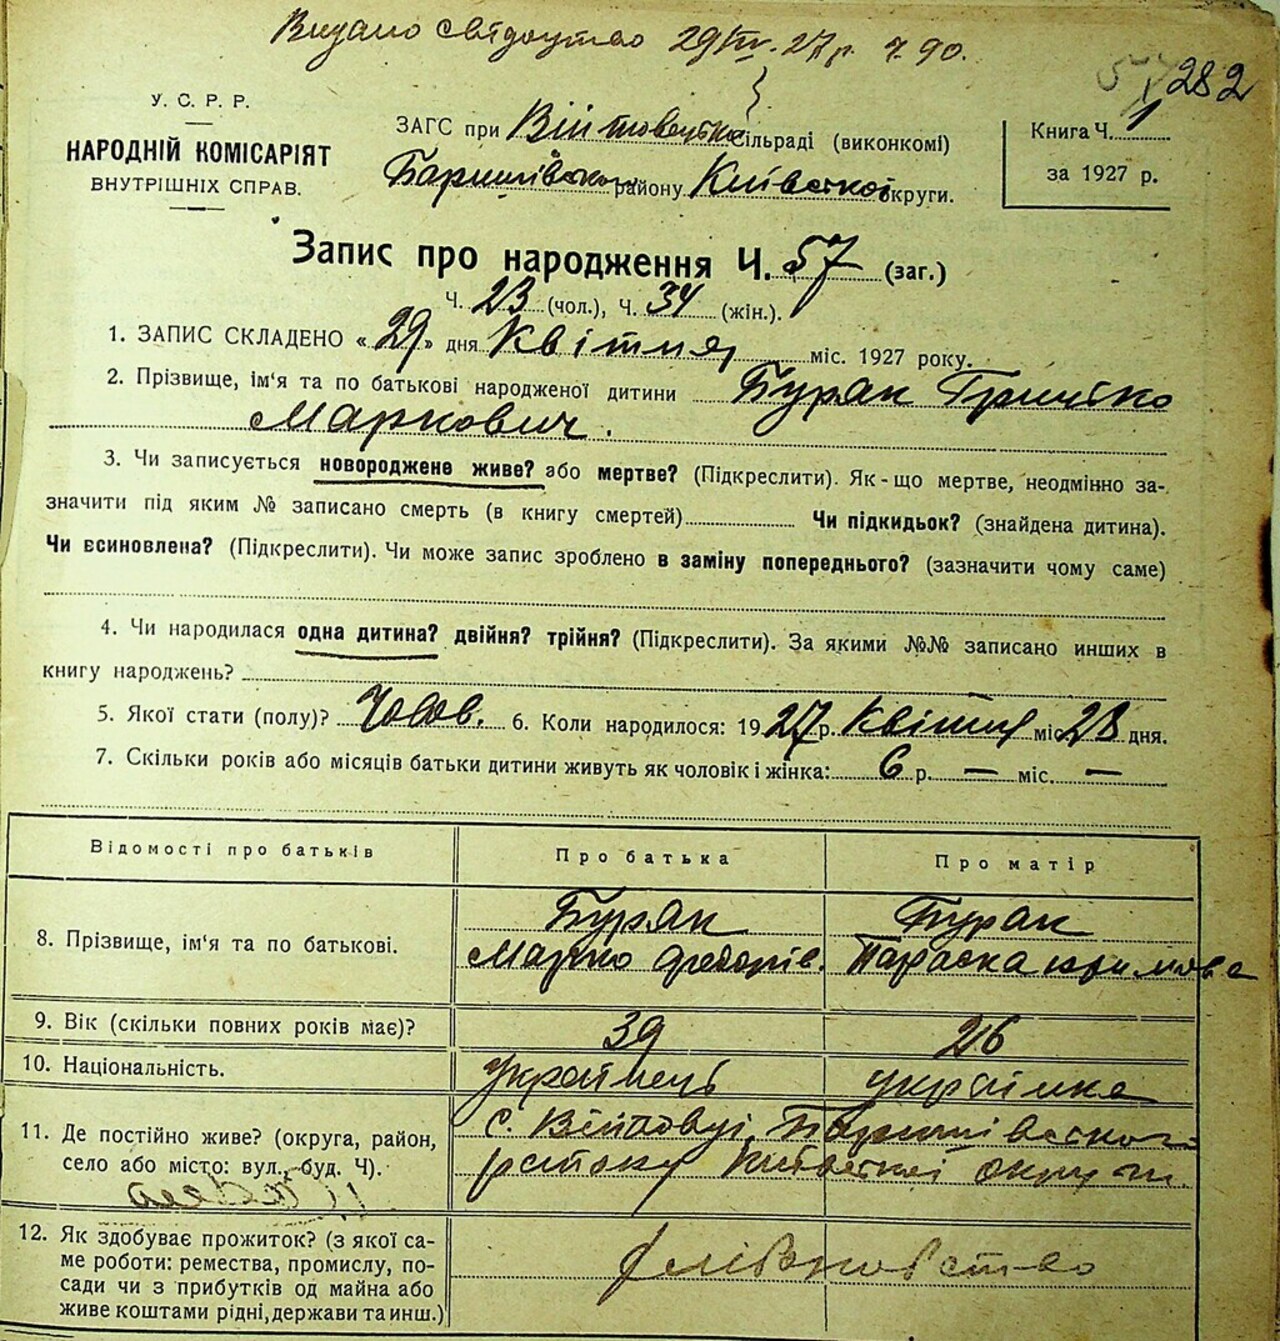 Видано свідоцтво 29/IV. 27 р. Ч. 90.
282
У. С. Р. Р.
НАРОДНІЙ КОМІСАРІЯТ
ВНУТРІШНІХ СПРАВ.
ЗАГС при Війтовецькій сільраді (виконкомі)
Баришівського району Київської округи.
Книга Ч. 1
за 1927 р.
Запис про народження Ч. 57 (заг.)
Ч. 23 (чол.), Ч. 34 (жін.).
1. ЗАПИС СКЛАДЕНО «29» дня Квітня міс. 1927 року.
2. Прізвище, ім'я та по батькові народженої дитини Буряк Грицько
Маркович.
3. Чи записується новороджене живе? або мертве? (Підкреслити). Як-що мертве, неодмінно за-
значити під яким № записано смерть (в книгу смертей) Чи підкидьок? (знайдена дитина).
Чи всиновлена? (Підкреслити). Чи може запис зроблено в заміну попереднього? (зазначити чому саме)
4. Чи народилася одна дитина? двійня? трійня? (Підкреслити). За якими №№ записано инших в
книгу народжень?
5. Якої стати (полу)? Чолов. 6. Коли народилося: 1927 р. Квітня міс. 28 дня.
7. Скільки років або місяців батьки дитини живуть як чоловік і жінка: 6 р. — міс. —
Відомості про батьків Про батька Про матір
8. Прізвище, ім'я та по батькові. Буряк Буряк
Марко Федорів. Параска
9. Вік (скільки повних років має)? 39 26
10. Національність. Українець українка
11. Де постійно живе? (округа, район, с. Війтовці, Баришівського
село або місто: вул., буд. Ч). району Київської округи.
12. Як здобуває прожиток? (з якої са-
ме роботи: ремества, промислу, по-
сади чи з прибутків од майна або
живе коштами рідні, держави та инш.)